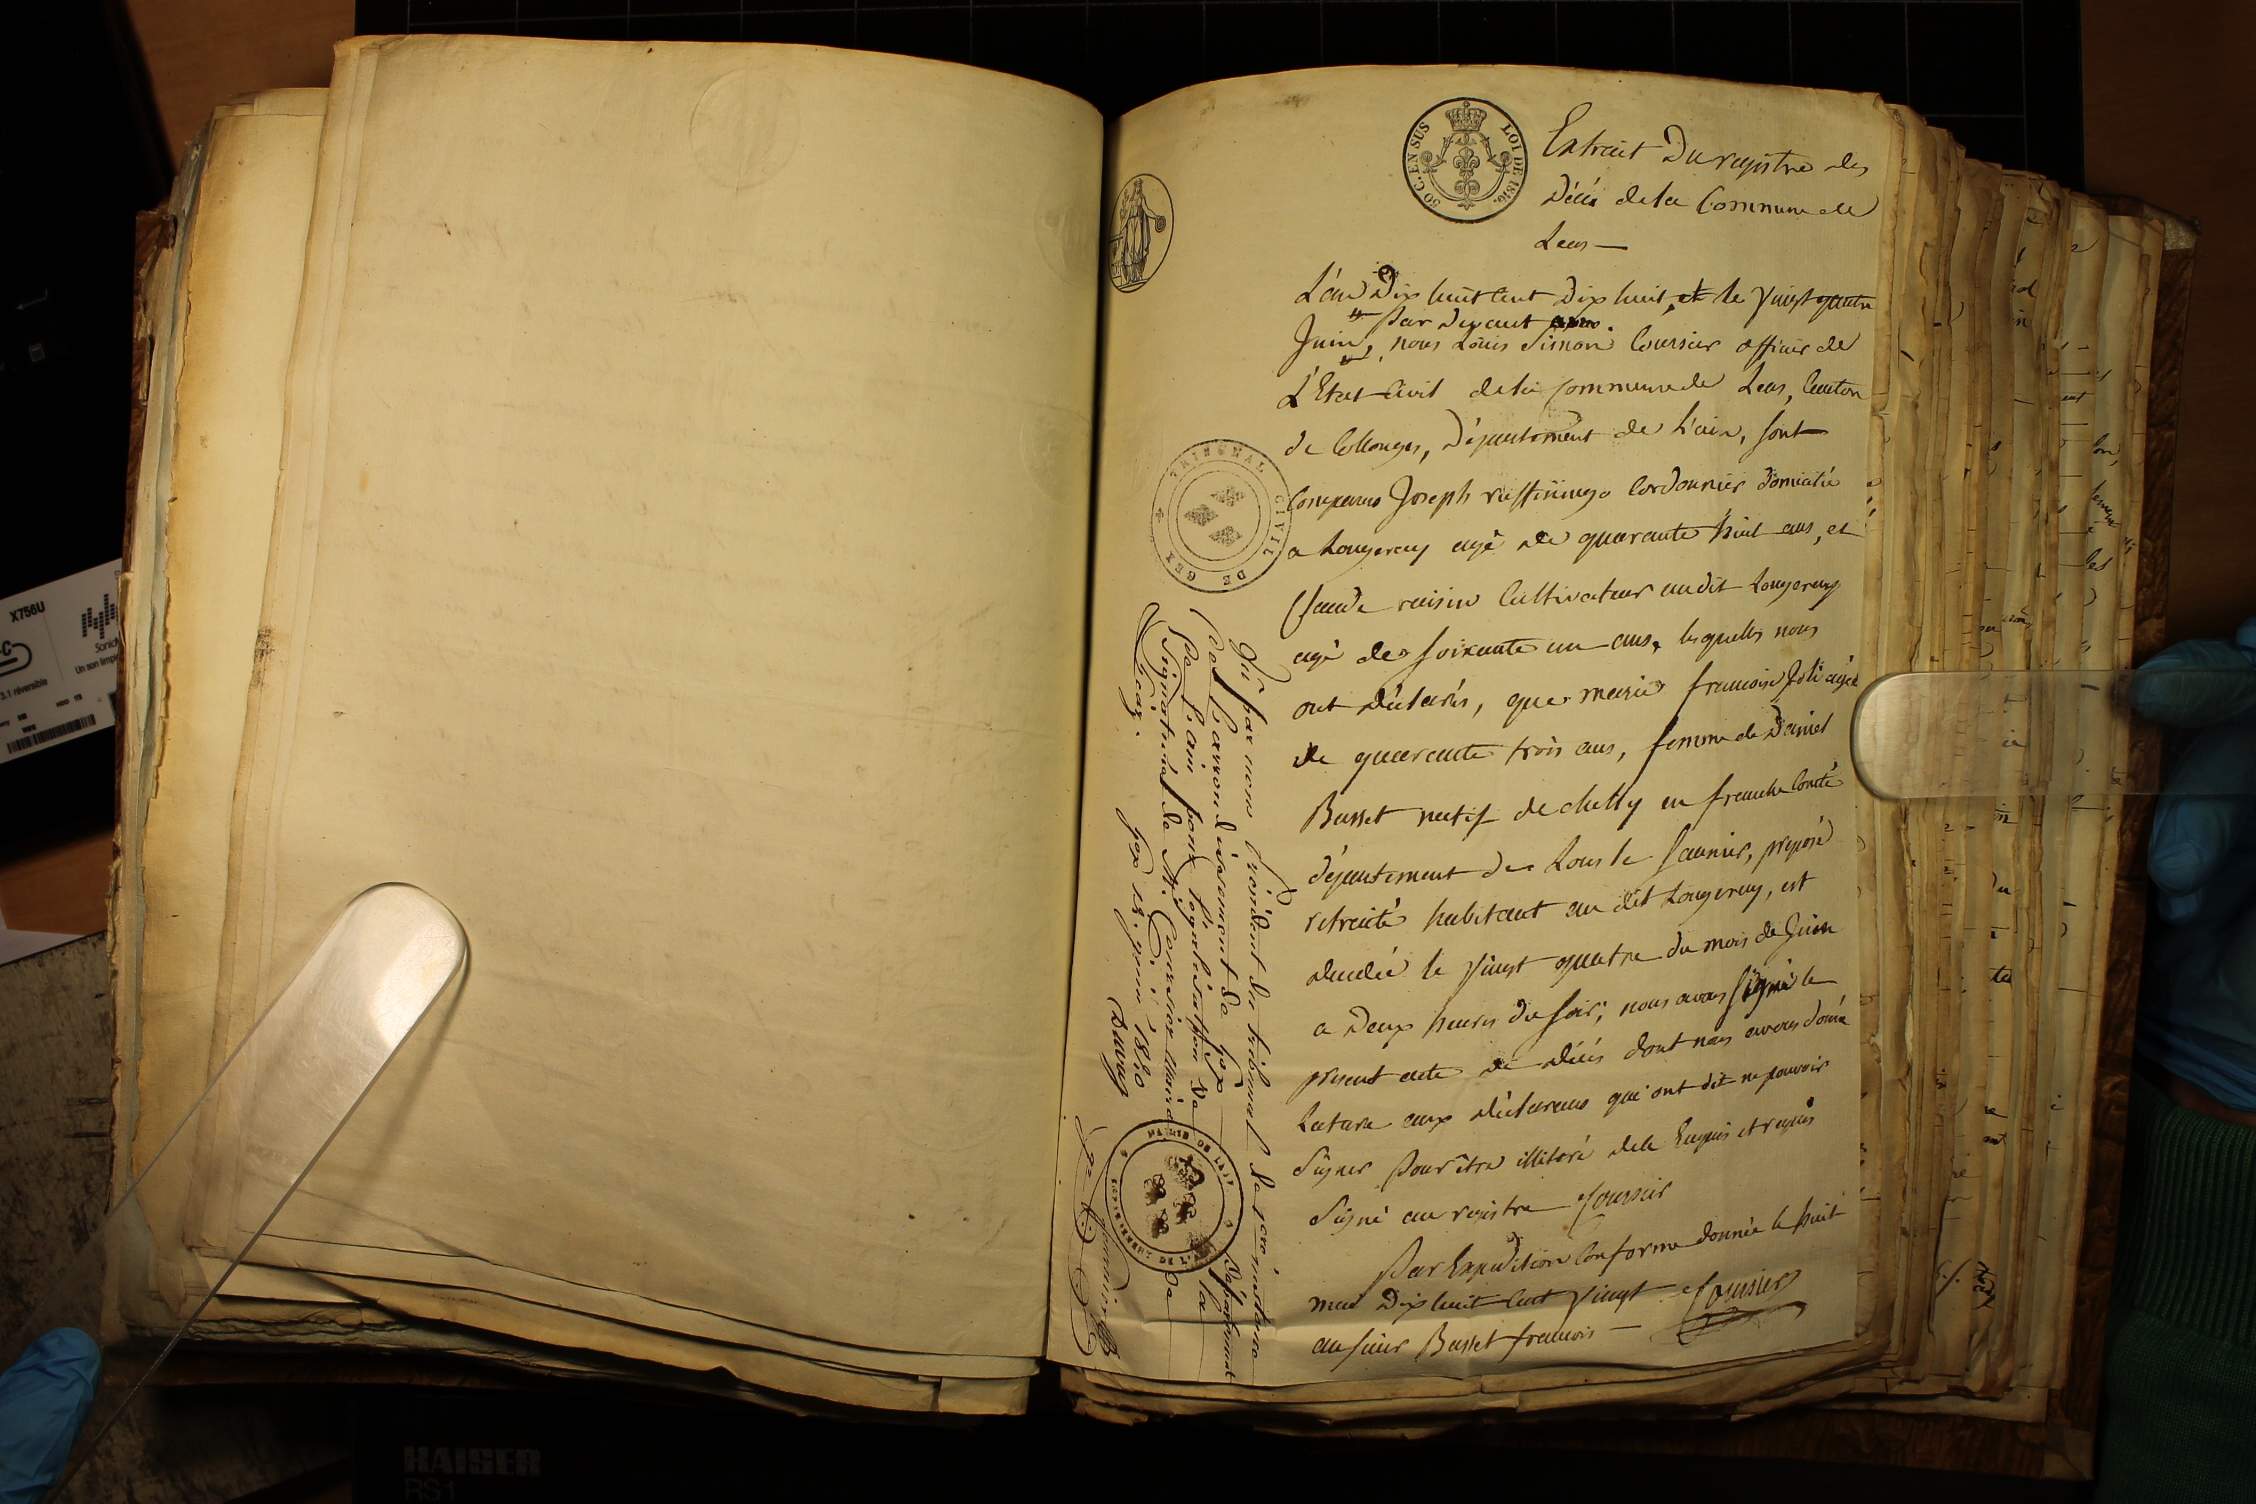 50 C. EN SUS
LOI DE 1816.
Extrait Du registre des
Décés de la Commune de
Leas —
L'an Dix huit cent Dix huit, et le vingt quatre
par devant
Juin, nous Louis Simon Coursier officier de
L'Etat Civil de la Commune de Leas, Canton
de Collonges, Département de L'ain, sont
Comparus Joseph Cordonnier domicilié
a Longeray agé de quarante huit ans, et
Claude raisin Cultivateur au dit Longeray
agé de soixante un ans, lesquells nous
ont déclarés, que marie francoise Joli agée
de quarante trois ans, femme de Daniel
Busset natif de chilly en franche Comté
département de Lons le Saunier, préposé
retraité habitant au dit Longeray, est
decedée le vingt quatre du mois de Juin
a Deux heures du soir; nous avons signé le
present acte de décés dont nous avons doné
Lecture aux déclarans qui ont dit ne pouvoir
Signer pour être illitéré
Signé au registre Coursier
Par Expedition Conforme donnée le huit
mai Dix huit cent vingt Coursier
au sieur Busset francois —
TRIBUNAL CIVIL DE GEX
Vu par nous Président du tribunal de 1ere instance
de L'arrondissement de gex Département
De L'ain pour légalisation De la
Signature de M. Coursier Maire De
Leaz.
gex 15. juin 1820
MAIRIE DE
HAISER
RS1
X756U
3.1 réversible
Un son limpi